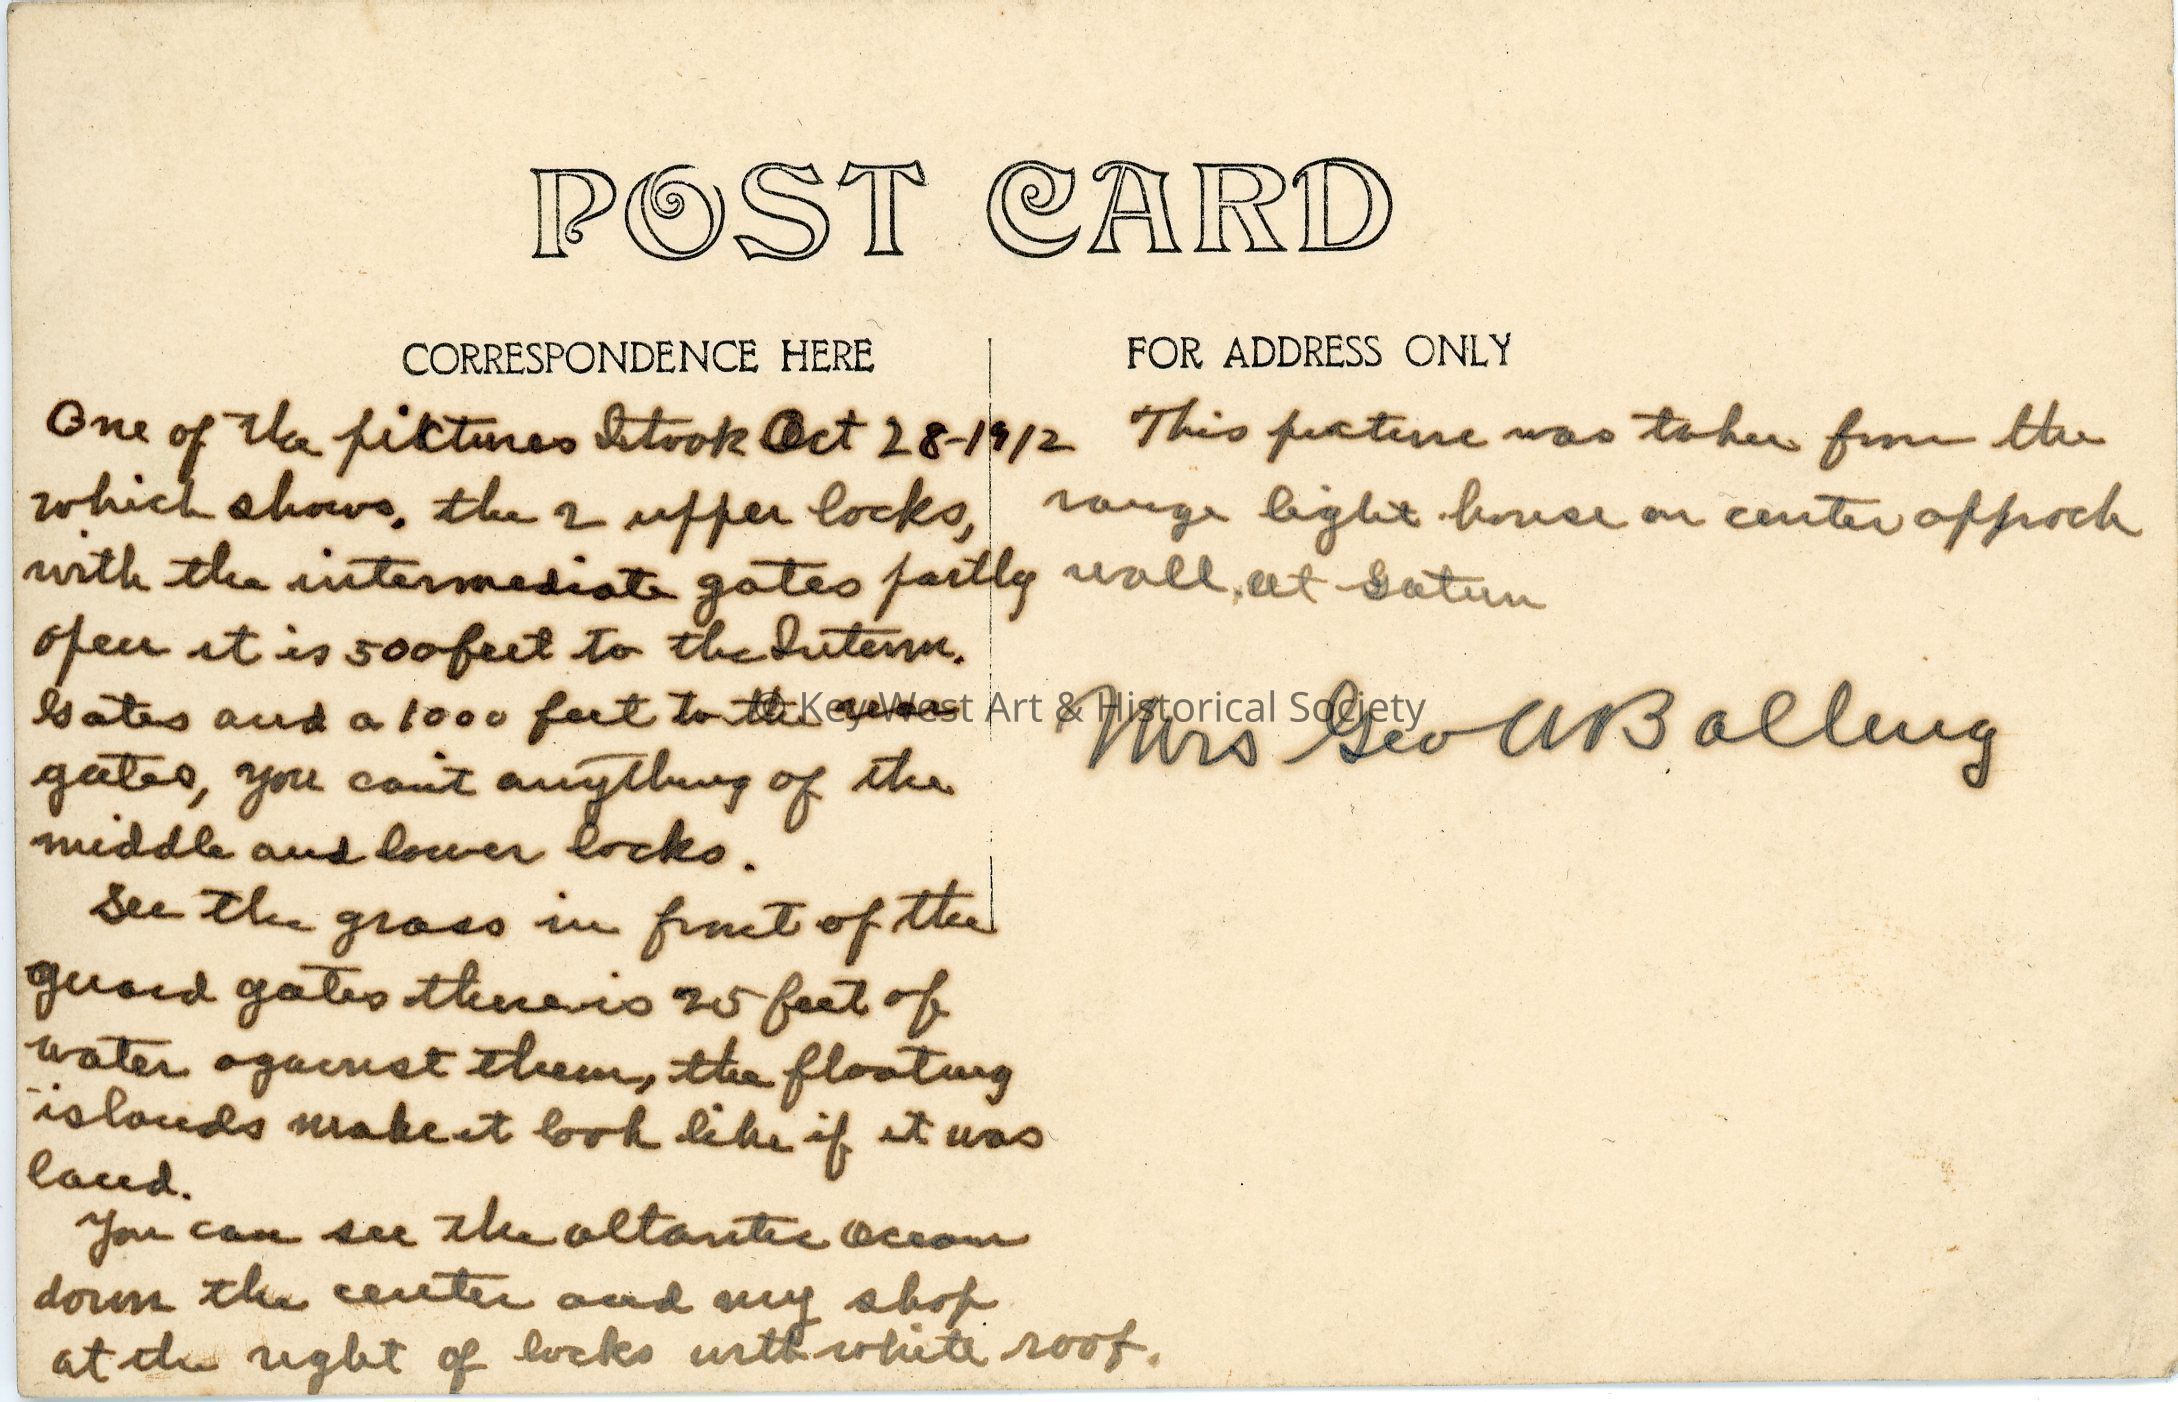 POST CARD
CORRESPONDENCE HERE
One of the piktures I took Oct 28-1912
which shows. the 2 upper locks,
with the intermediate gates partly
open it is 500 feet to the Interm.
Gates and a 1000 feet to the
gates, you can't anything of the
middle and lower locks.
See the grass in front of the
guard gates there is 25 feet of
water against them, the floating
islands make it look like if it was
land.
You can see the altantic Ocean
down the center and my shop
at the right of locks with white roof.
FOR ADDRESS ONLY
This picture was taken from the
range light house on center approch
wall, at Gatun
© Key West Art & Historical Society
Mrs Geo A Bolling